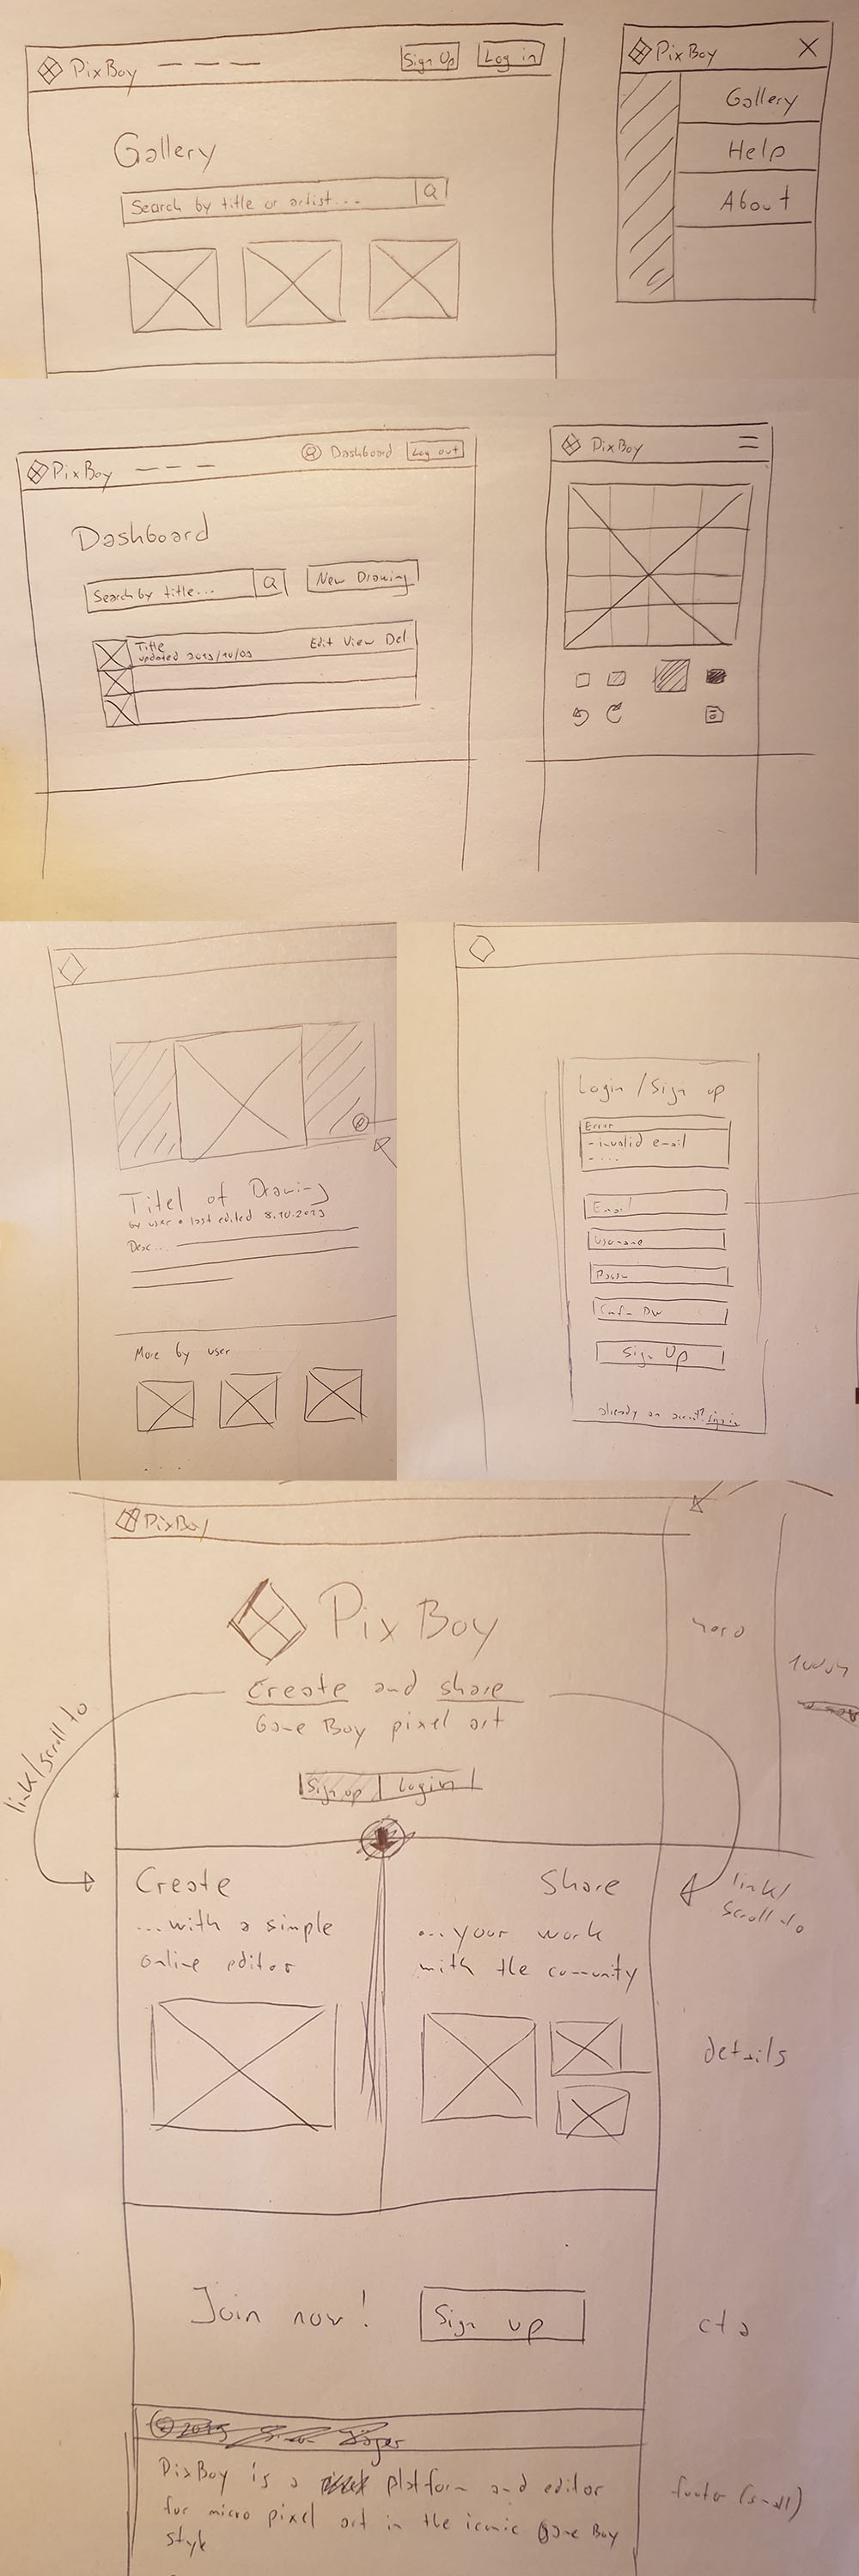 PixBoy
Sign Up
Log in
Gallery
Search by title or artist...
PixBoy
X
Gallery
Help
About
PixBoy
Dashboard
Log out
Dashboard
Search by title...
New Drawing
Title
updated 2019/10/09
Edit View Del
PixBoy
Titel of Drawing
by user • last edited 8.10.2019
Desc...
More by user
....
Login / Sign up
Error
- invalid email
- ...
Email
Username
Passw
Conf. PW
Sign Up
already an account? sign in
PixBoy
PixBoy
Create and share
Game Boy pixel art
Sign up
Login
hero
100vh
link/scroll to
Create
...with a simple
online editor
Share
...your work
with the comunity
link/
scroll to
details
Join now!
Sign up
cta
PixBoy is a platform and editor
for micro pixel art in the iconic Game Boy
style
footer (small)